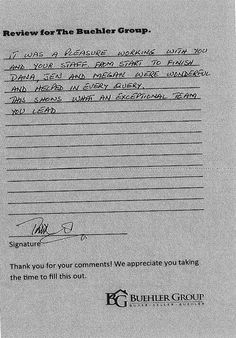 Review for The Buehler Group.
IT WAS A PLEASURE WORKING WITH YOU
AND YOUR STAFF. FROM START TO FINISH
DANA, JEN AND MEGAN WERE WONDERFUL
AND HELPED IN EVERY QUERY.
THIS SHOWS WHAT AN EXCEPTIONAL TEAM
YOU LEAD
Signature
Thank you for your comments! We appreciate you taking
the time to fill this out.
BG BUEHLER GROUP
BUYER · SELLER · BUEHLER